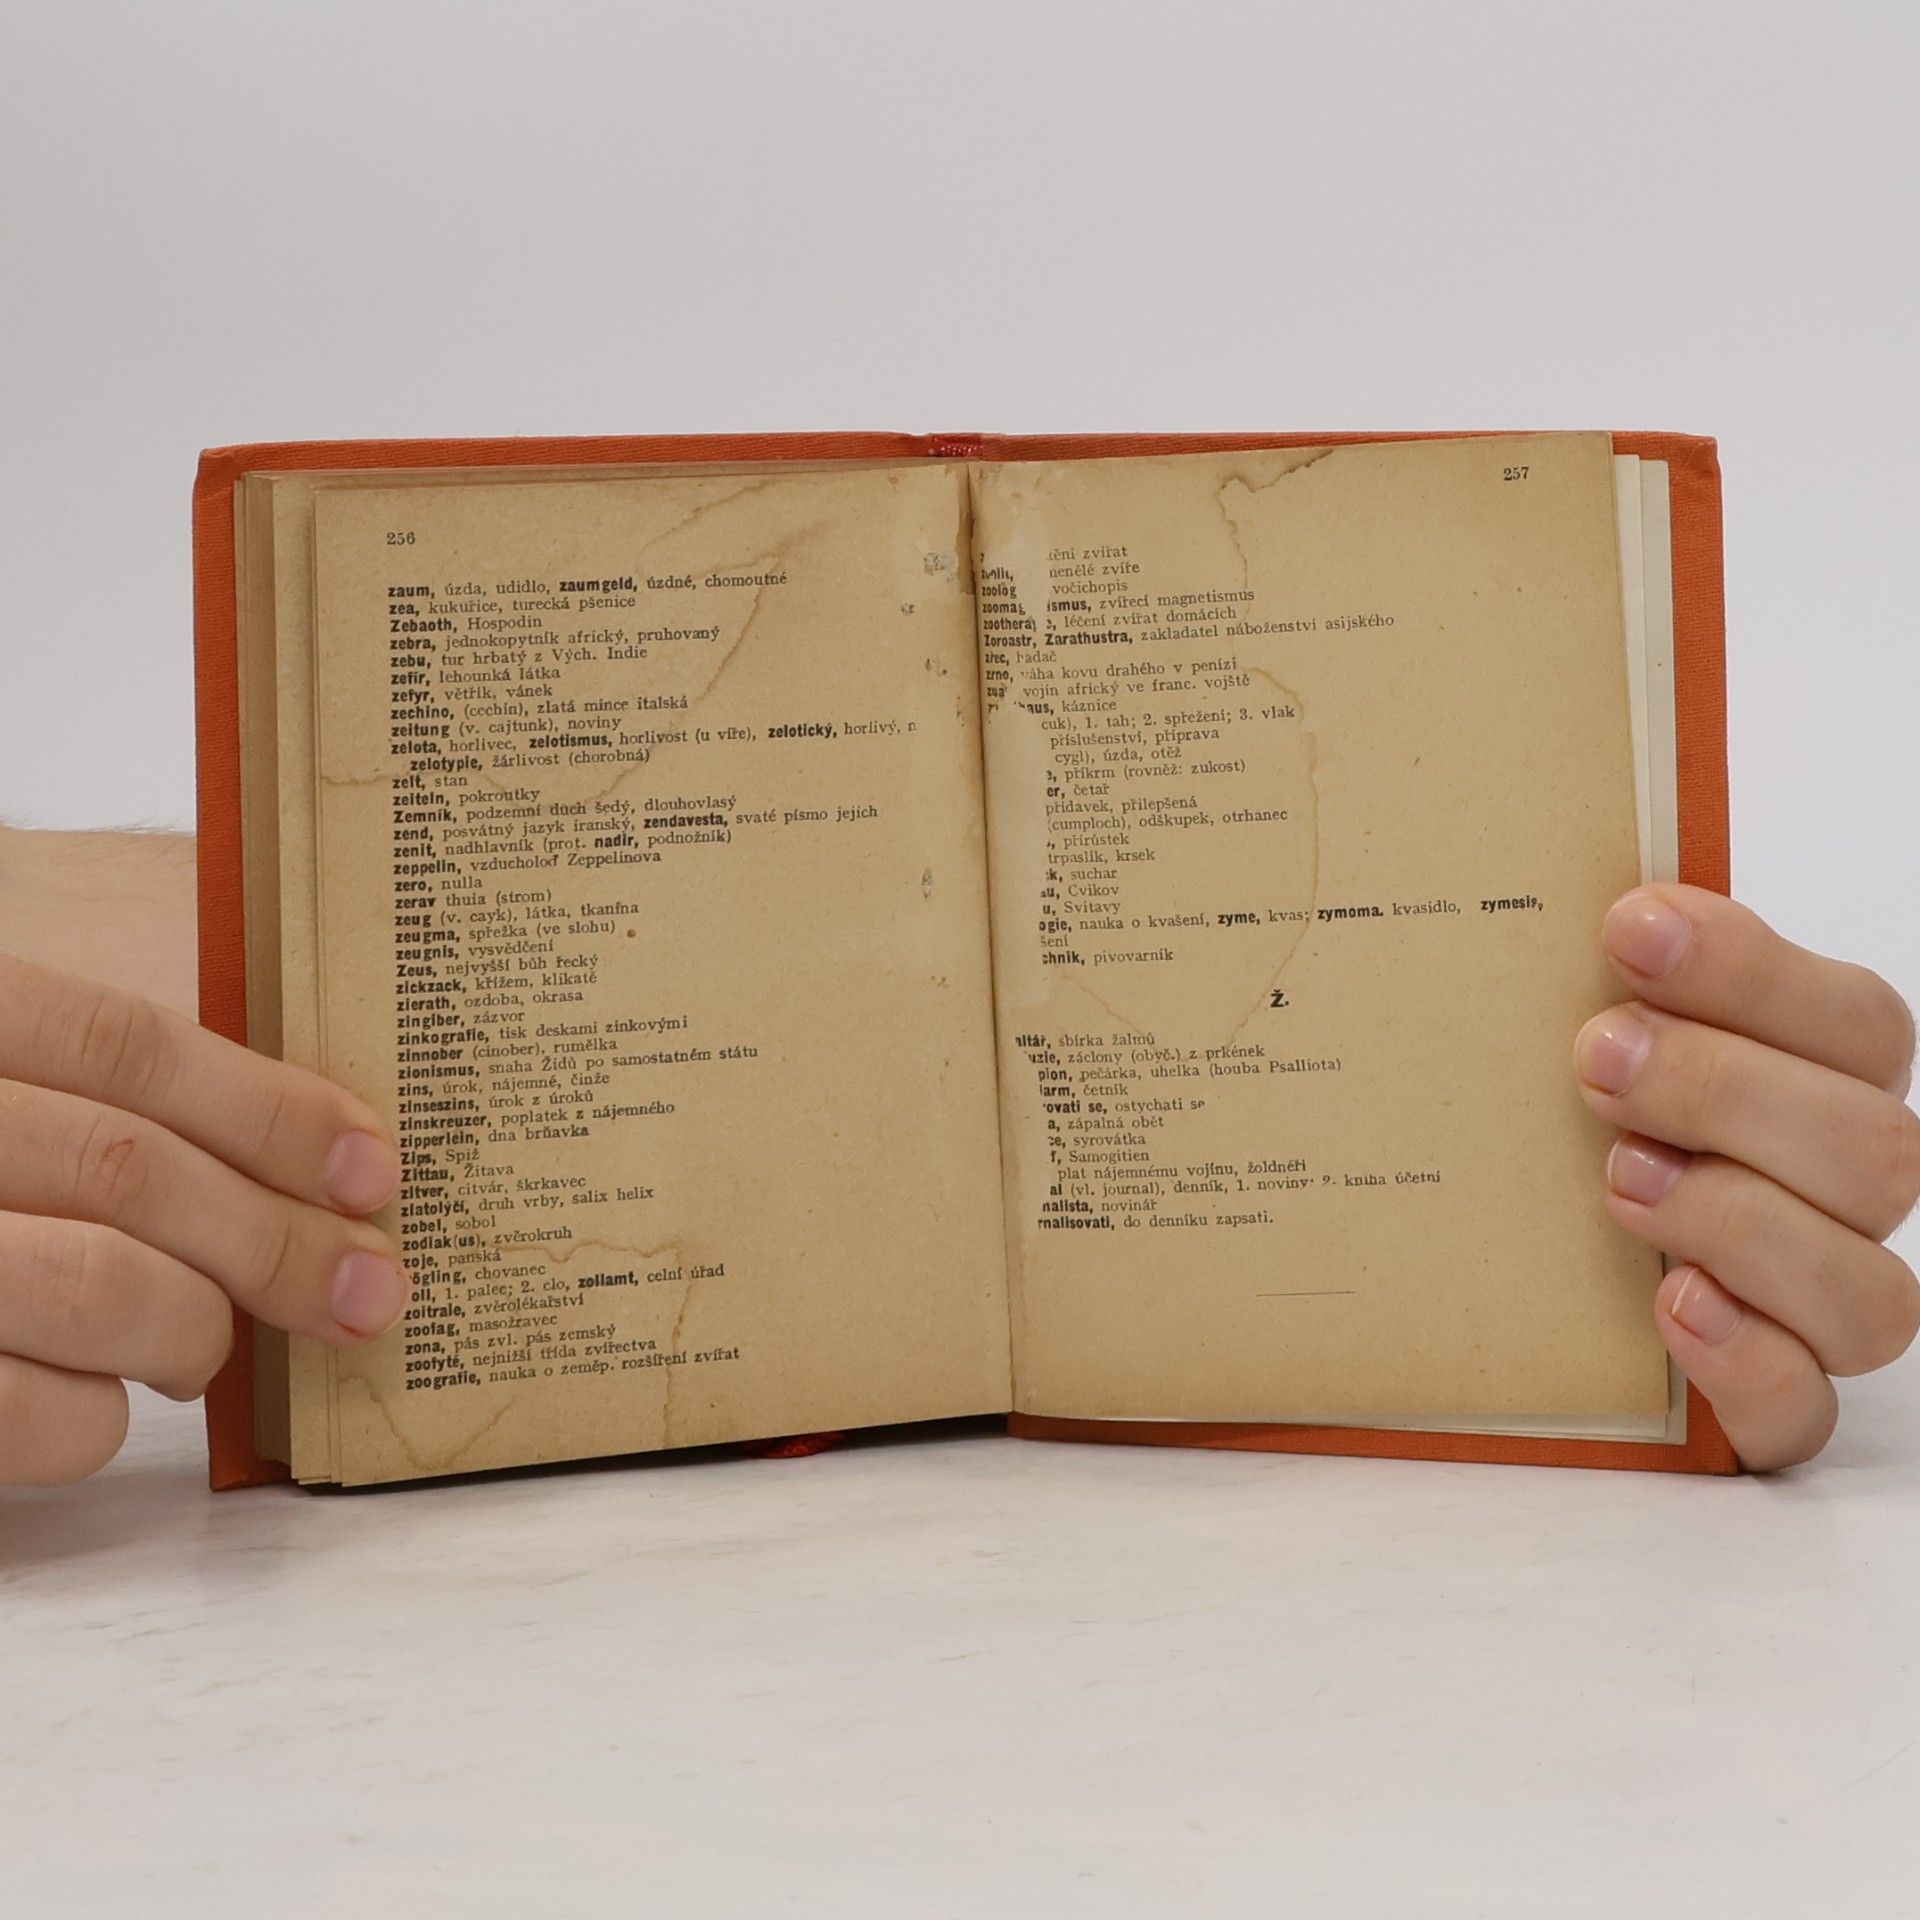 256
zaum, úzda, udidlo, zaumgeld, úzdné, chomoutné
zea, kukuřice, turecká pšenice
Zebaoth, Hospodin
zebra, jednokopytník africký, pruhovaný
zebu, tur hrbatý z Vých. Indie
zefir, lehounká látka
zefyr, větřík, vánek
zechino, (cechin), zlatá mince italská
zeitung (v. cajtunk), noviny
zelota, horlivec, zelotismus, horlivost (u víře), zelotický, horlivý, n
zelotypie, žárlivost (chorobná)
zelt, stan
zelteln, pokroutky
Zemník, podzemní duch šedý, dlouhovlasý
zend, posvátný jazyk iranský, zendavesta, svaté písmo jejich
zenit, nadhlavník (prot. nadir, podnožník)
zeppelin, vzducholoď Zeppelinova
zero, nulla
zerav thuia (strom)
zeug (v. cayk), látka, tkanina
zeugma, spřežka (ve slohu)
zeugnis, vysvědčení
Zeus, nejvyšší bůh řecký
zickzack, křížem, klikatě
zierath, ozdoba, okrasa
zingiber, zázvor
zinkografie, tisk deskami zinkovými
zinnober (cinober), rumělka
zionismus, snaha Židů po samostatném státu
zins, úrok, nájemné, činže
zinseszins, úrok z úroků
zinskreuzer, poplatek z nájemného
zipperlein, dna brňavka
Zips, Spiž
Zittau, Žitava
zitver, citvár, škrkavec
zlatolýčí, druh vrby, salix helix
zobel, sobol
zodiak(us), zvěrokruh
zoje, panská
ögling, chovanec
oll, 1. palec; 2. clo, zollamt, celní úřad
zoitrale, zvěrolékařství
zoofag, masožravec
zona, pás zvl. pás zemský
zoofyté, nejnižší třída zvířectva
zoografie, nauka o zeměp. rozšíření zvířat
257
zvířat
nenělé zvíře
zoolog vočichopis
zoomag ismus, zvířecí magnetismus
zoothera e, léčení zvířat domácích
Zoroastr, Zarathustra, zakladatel náboženství asijského
zřec, hadač
zrno, váha kovu drahého v penízi
vojín africký ve franc. vojště
haus, káznice
cuk), 1. tah; 2. spřežení; 3. vlak
příslušenství, příprava
cygl), úzda, otěž
e, příkrm (rovněž: zukost)
er, četař
přídavek, přilepšená
(cumploch), odškupek, otrhanec
přírůstek
trpaslík, krsek
k, suchar
au, Cvikov
u, Svitavy
ogie, nauka o kvašení, zyme, kvas; zymoma. kvasidlo, zymesis,
šení
chnik, pivovarník
Ž.
altář, sbírka žalmů
uzie, záclony (obyč.) z prkének
pion, pečárka, uhelka (houba Psalliota)
darm, četník
ovati se, ostychati se
a, zápalná obět
ce, syrovátka
f, Samogitien
plat nájemnému vojínu, žoldnéři
al (vl. journal), denník, 1. noviny; 2. kniha účetní
nalista, novinář
rnalisovati, do denníku zapsati.